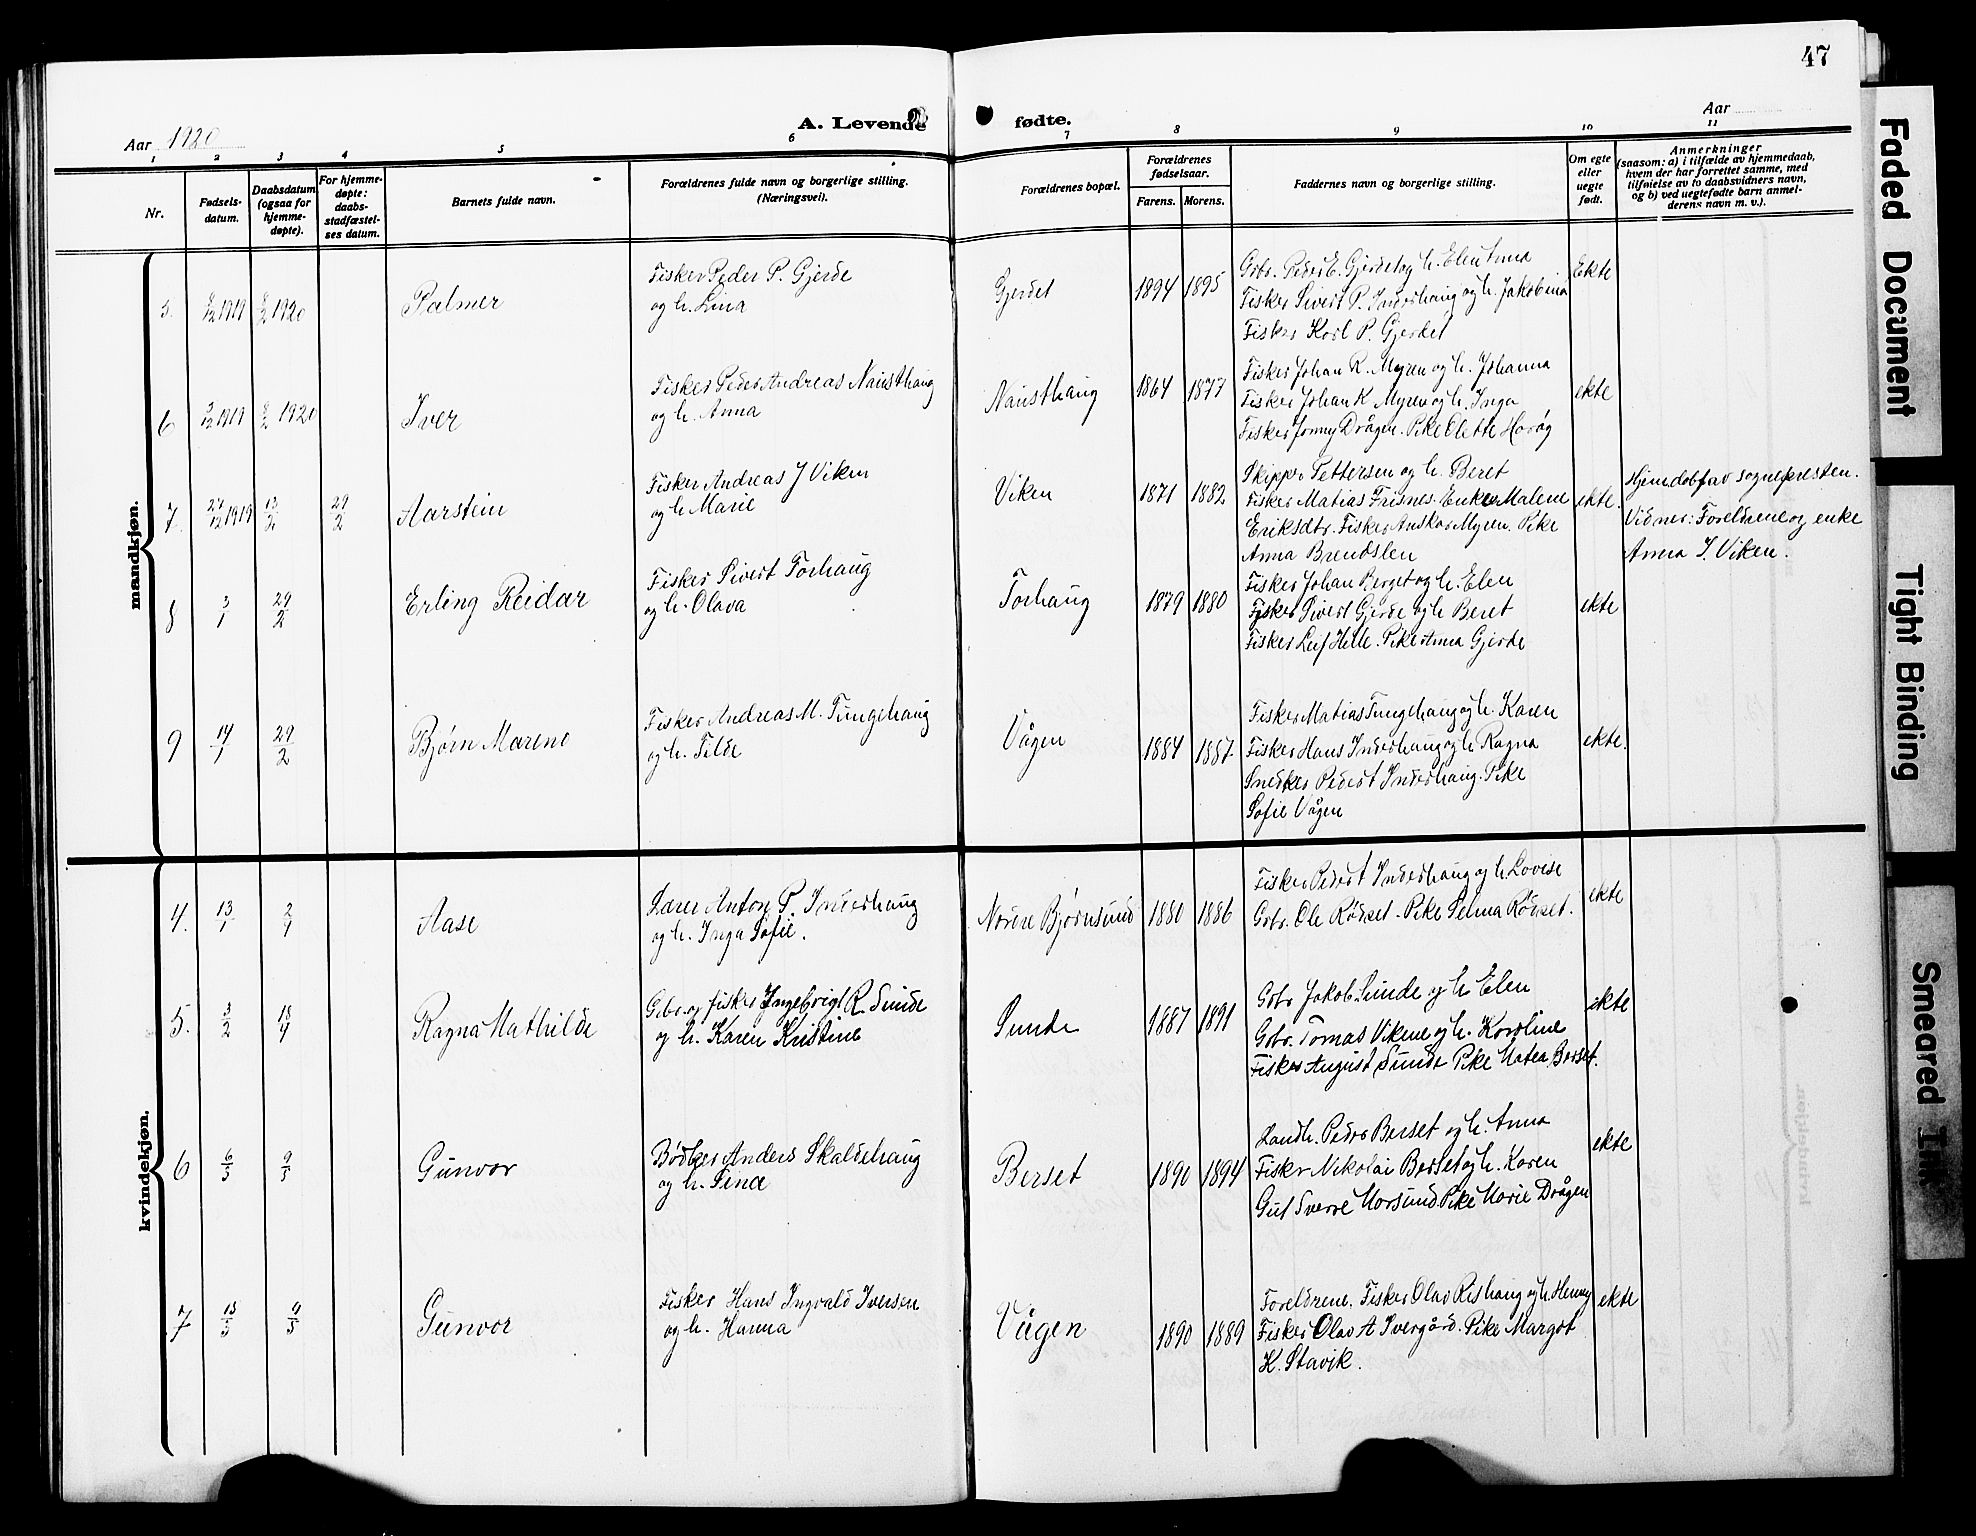 47
Aar 1920
A. Levende fødte.
Aar
1 2 3 4 5 6 7 8 9 10 11
Nr.
Fødsels-
datum.
Daabsdatum
(ogsaa for
hjemme-
døpte).
For hjemme-
døpte:
daabs-
stadfæstel-
ses datum.
Barnets fulde navn.
Forældrenes fulde navn og borgerlige stilling.
(Næringsvei).
Forældrenes bopæl.
Forældrenes
fødselsaar.
Farens. Morens.
Faddernes navn og borgerlige stilling.
Om egte
eller
uegte
født.
Anmerkninger
(saasom: a) i tilfælde av hjemmedaab,
hvem der har forrettet samme, med
tilføielse av to daabsvidners navn,
og b) ved uegtefødte barn anmel-
derens navn m. v.).
mandkjøn.
5. 1919 1920
Palmer
Fisker Peder P. Gjerde
og h. Lina
Gjerdet
1894 1895
Gbr. Peder E. Gjerdet og h. Elen Anna
Fisker Sivert P. Inderhaug og h. Jakobina
Fisker Karl P. Gjerdet
Ekte
6 1919 1920
Iver
Fisker Peder Andreas Nausthaug
og h. Anna
Nausthaug
1864 1877
Fisker Johan R. Myren og h. Johanna
Fisker Johan K Myren og h. Inga
Fisker Jonny Drågen. Pike Olette Harøy
ekte
7. 27/12 1919 13/2 29/2
Aarstein
Fisker Andreas J Viken
og h. Marie
Viken
1871 1882
Skipper Pettersen og h. Beret
Fisker Matias Frisnes. Enke Malene
Eriksdtr. Fisker Anskar Myren. Pike
Anna Brendslen
ekte.
Hjemdøbt av sognepresten.
Vidner: Foreldrene og enke
Anna I. Viken.
8 3/1 29/2
Erling Reidar
Fisker Sivert Torhaug
og h. Olava
Torhaug
1879 1880
Fisker Johan Berget og h. Elen
Fisker Sivert Gjerde og h Beret
Fisker Leif Helle. Pike Anna Gjerde
ekte
9 14/1 29/2
Bjørn Mareno
Fisker Andreas M. Tungehaug
og h. Tilde
Vågen
1884 1887
Fisker Matias Tungehaug og h. Karen
Fisker Hans Inderhaug og h Ragna
Snedker Peder Inderhaug. Pike
Sofie Vågen
ekte.
kvindekjøn.
4. 13/1 2/4
Aase
Lærer Anton P. Inderhaug
og h. Inga Sofie.
Nøren Bjørnsund
1880 1886
Fisker Peder Inderhaug og h Lovise
Gbr. Ole Rødset. Pike Selma Rødset.
ekte
5. 3/2 18/4
Ragna Mathilde
Gbr. og fisker Ingebrigt R. Sunde
og h. Karen Kristine
Sunde
1887 1891
Gbr Jakob Sunde og h. Elen
Gbr. Tomas Vikene og h. Karoline
Fisker August Sunde Pike Matea Berset.
ekte
6 6/3 9/5
Gunvor
Bødker Anders Skaldehaug
og h. Fina
Berset
1890 1894
Landh. Peder Berset og h. Anna
Fisker Nikolai Berset og h. Karen
Gut Sverre Harsund Pike Marie Drågen
ekte
7 15/3 9/5
Gunvor
Fisker Hans Ingvald Iversen
og h. Hanna
Vågen
1890 1889
Foreldrene. Fisker Olav Rishaug og h. Henny
Fisker Olav A Ivergård. Pike Margot
K. Stavik.
ekte
Faded Document
Tight Binding
Smeared Ink